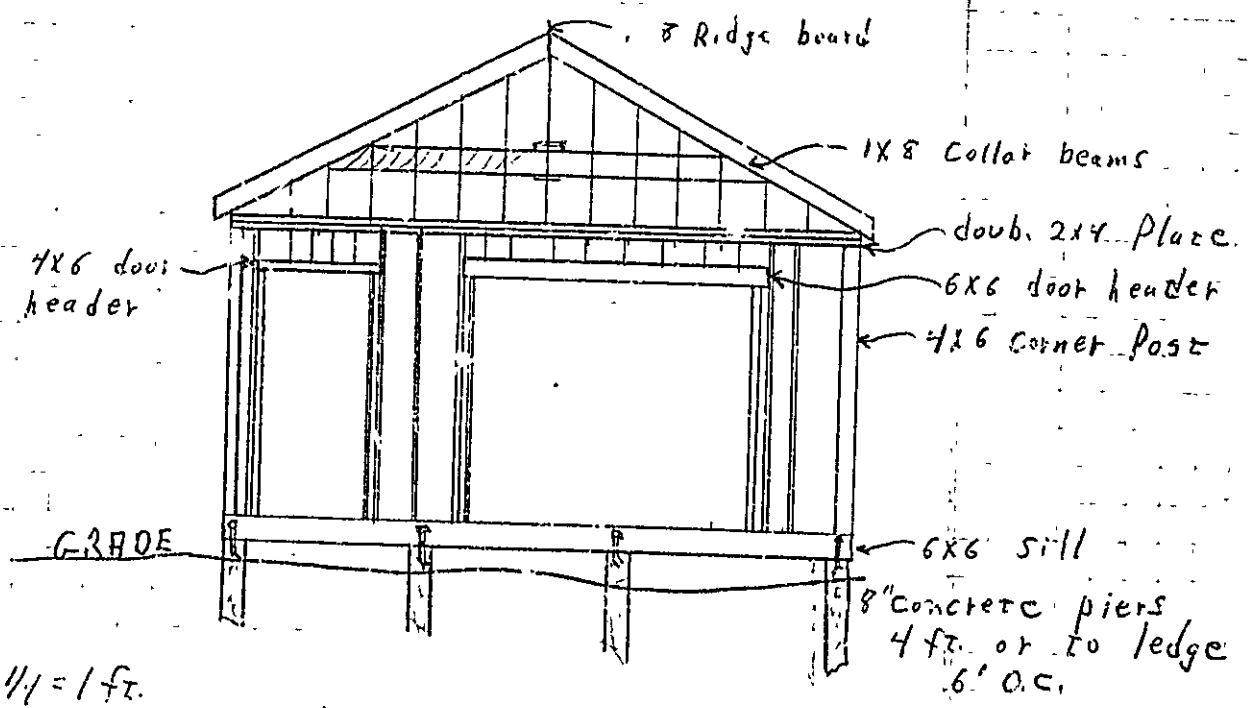 8 Ridge board
1X8 Collar beams
doub. 2x4 Place.
4X6 door
header
6X6 door header
4X6 Corner Post
GRADE
6X6 Sill
8" concrete piers
4 ft. or to ledge
6' O.C.
= 1 ft.